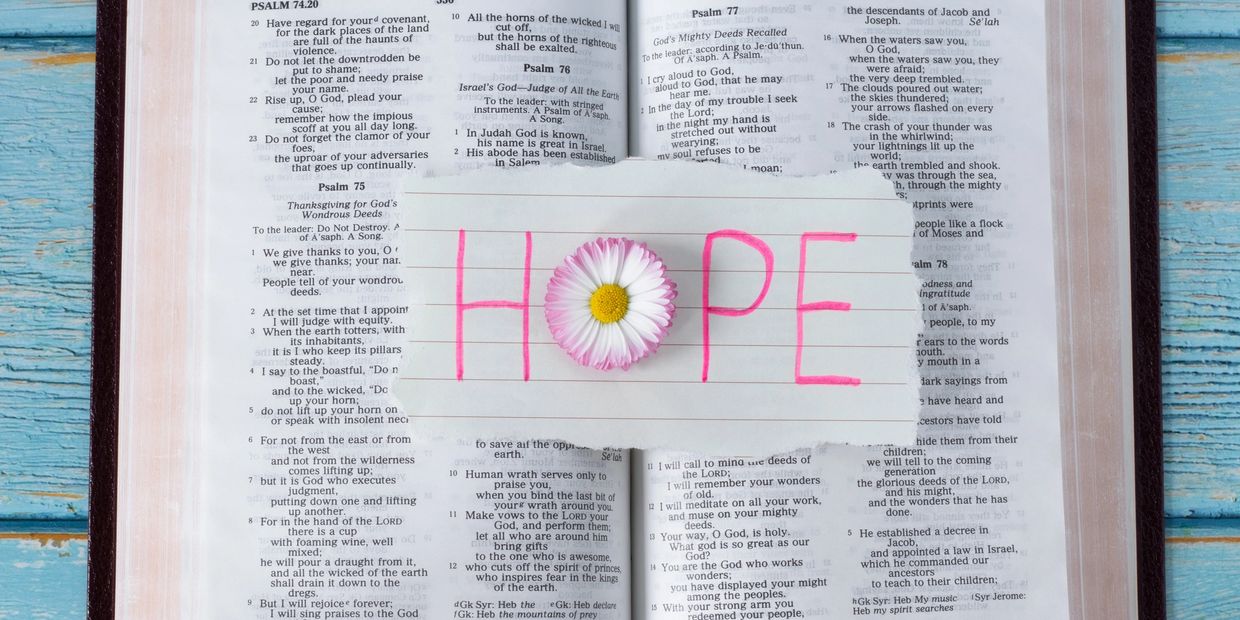 PSALM 74.20
20 Have regard for your d covenant,
for the dark places of the land
are full of the haunts of
violence.
21 Do not let the downtrodden be
put to shame;
let the poor and needy praise
your name.
22 Rise up, O God, plead your
cause;
remember how the impious
scoff at you all day long.
23 Do not forget the clamor of your
foes,
the uproar of your adversaries
that goes up continually.
Psalm 75
Thanksgiving for God's
Wondrous Deeds
To the leader: Do Not Destroy.
of A'saph. A Song.
1 We give thanks to you, O
we give thanks; your
near.
People tell of your
deeds.
2 At the set time that I appoint
I will judge with equity.
3 When the earth totters, with
its inhabitants,
it is I who keep its pillars
steady.
4 I say to the boastful, “Do
boast,”
and to the wicked, “Do
up your horn;
5 do not lift up your horn on
or speak with insolent
6 For not from the east or from
the west
and not from the wilderness
comes lifting up;
7 but it is God who executes
judgment,
putting down one and lifting
up another.
8 For in the hand of the LORD
there is a cup
with foaming wine, well
mixed;
he will pour a draught from it,
and all the wicked of the earth
shall drain it down to the
dregs.
9 But I will rejoice e forever;
I will sing praises to the God
10 All the horns of the wicked I will
cut off,
but the horns of the righteous
shall be exalted.
Psalm 76
Israel's God—Judge of All the Earth
To the leader: with stringed
instruments. A Psalm of A'saph.
A Song.
1 In Judah God is known,
his name is great in Israel.
2 His abode has been established
in Salem,
H PE
to save all the
earth. Se'lah
10 Human wrath serves only to
praise you,
when you bind the last bit of
your g wrath around you.
11 Make vows to the LORD your
God, and perform them;
let all who are around him
bring gifts
to the one who is awesome,
12 who cuts off the spirit of princes,
who inspires fear in the kings
of the earth.
d Gk Syr: Heb the e Gk: Heb declare
f Gk: Heb the mountains of prey
Psalm 77
God's Mighty Deeds Recalled
To the leader: according to Je·du'thun.
Of A'saph. A Psalm.
1 I cry aloud to God,
aloud to God, that he may
hear me.
2 In the day of my trouble I seek
the Lord;
in the night my hand is
stretched out without
wearying;
my soul refuses to be
I moan;
11 I will call to mind the deeds of
the LORD;
I will remember your wonders
of old.
12 I will meditate on all your work,
and muse on your mighty
deeds.
13 Your way, O God, is holy.
What god is so great as our
God?
14 You are the God who works
wonders;
you have displayed your might
among the peoples.
15 With your strong arm you
redeemed your people,
the descendants of Jacob and
Joseph. Se'lah
16 When the waters saw you,
O God,
when the waters saw you, they
were afraid;
the very deep trembled.
17 The clouds poured out water;
the skies thundered;
your arrows flashed on every
side.
18 The crash of your thunder was
in the whirlwind;
your lightnings lit up the
world;
the earth trembled and shook.
way was through the sea,
through the mighty
were
people like a flock
of Moses and
78
and
of A'saph.
people, to my
ears to the words
mouth.
my mouth in a
dark sayings from
have heard and
have told
hide them from their
children;
we will tell to the coming
generation
the glorious deeds of the LORD,
and his might,
and the wonders that he has
done.
5 He established a decree in
Jacob,
and appointed a law in Israel,
which he commanded our
ancestors
to teach to their children;
h Gk Syr: Heb My music i Syr Jerome:
Heb my spirit searches